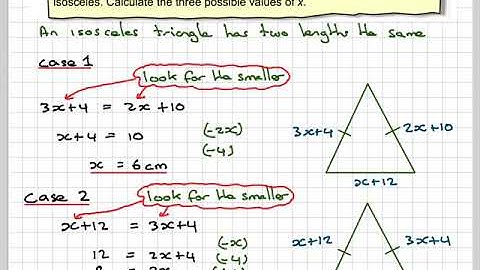 isosceles. Calculate the three possible values of x.
An isosceles triangle has two lengths the same
case 1
look for the smaller
3x+4 = 2x+10
x+4 = 10 (-2x)
(-4)
x = 6cm
3x+4
2x+10
x+12
case 2
look for the smaller
x+12 = 3x+4
(-x)
12 = 2x+4 (-4)
x+12
3x+4